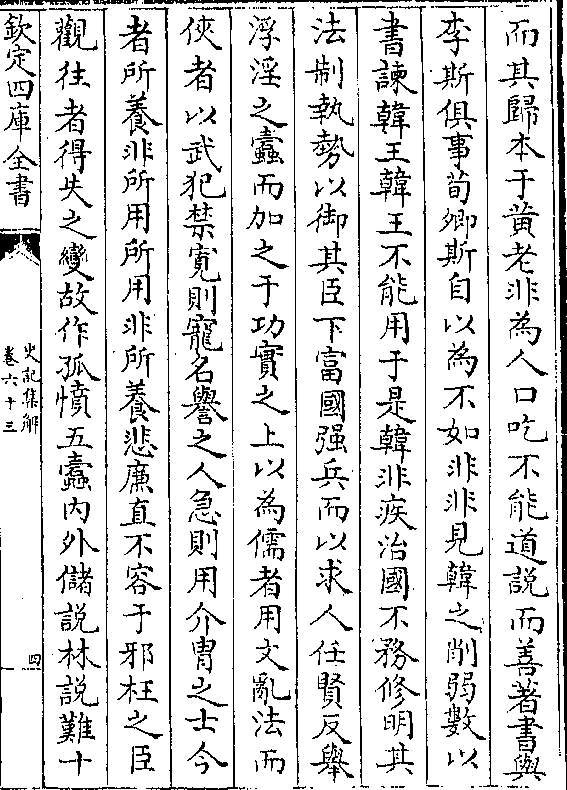 而其歸本于黄老非為人口吃不能道説而善著書與
李斯俱事荀卿斯自以為不如非非見韓之削弱數以
書諫韓王韓王不能用于是韓非疾治國不務修明其
法制執勢以御其臣下富國强兵而以求人任賢反舉
浮淫之蠹而加之于功實之上以為儒者用文亂法而
俠者以武犯禁寛則寵名譽之人急則用介胄之士今
者所養非所用所用非所養悲廉直不容于邪枉之臣
觀往者得失之變故作孤憤五蠹内外儲説林説難十
欽定四庫全書
史記集解
卷六十三
四